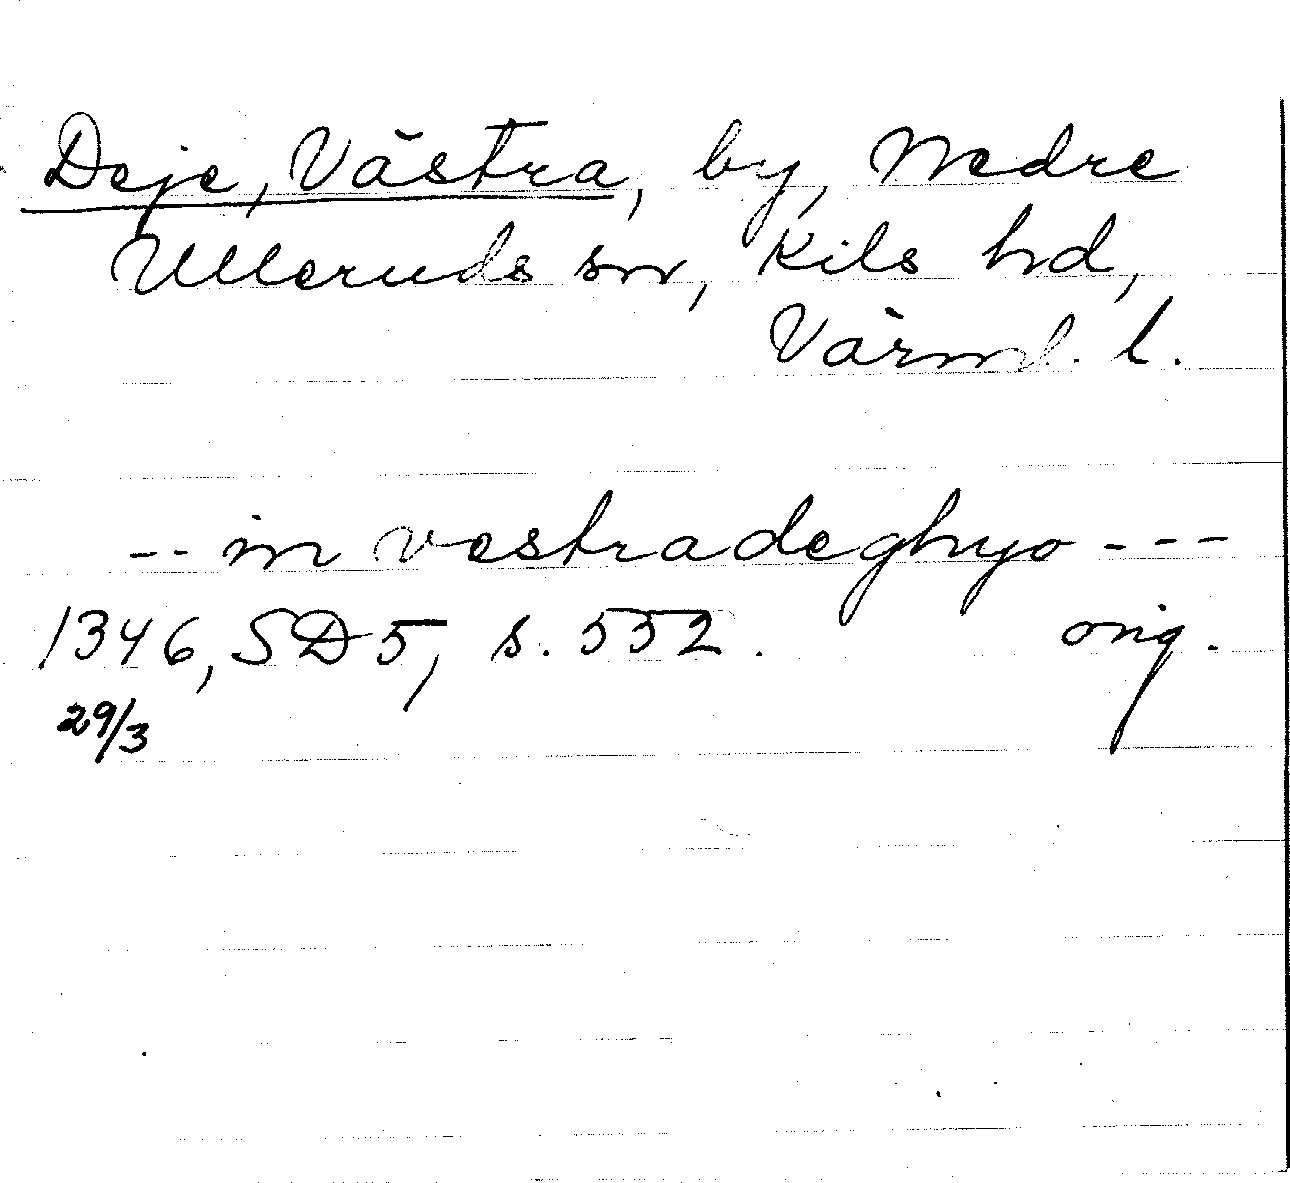 Deje, Västra, by, Nedre
Ulleruds sn, Kils hd,
Värml. l.
-- in vestradeghyo ---
1346, SD 5, s. 552. orig.
29/3